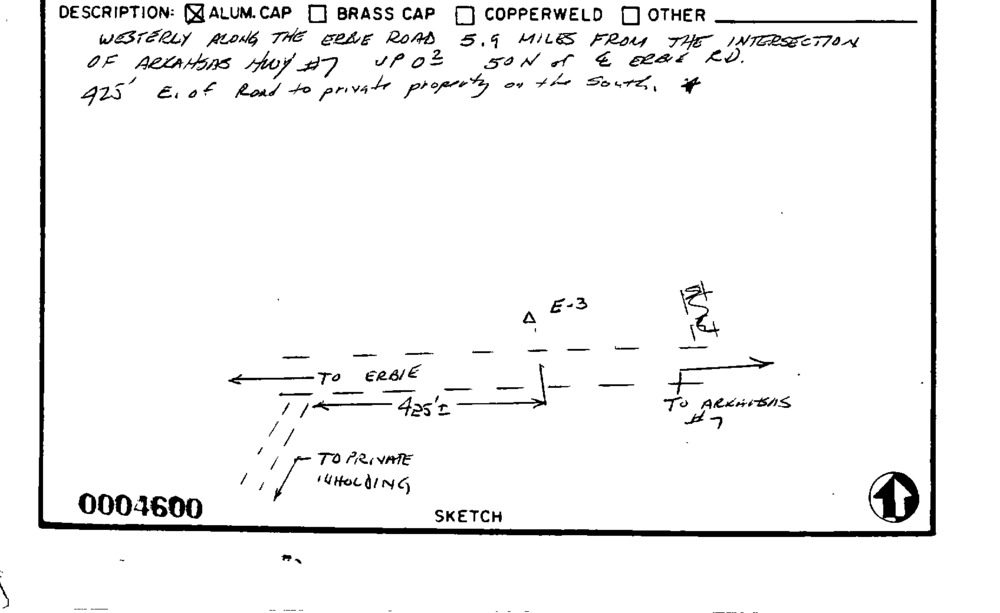 DESCRIPTION: ☒ ALUM. CAP ☐ BRASS CAP ☐ COPPERWELD ☐ OTHER
WESTERLY ALONG THE ERBIE ROAD 5.9 MILES FROM THE INTERSECTION
OF ARKANSAS HWY #7 50 N of ℄ ERBIE RD.
425' E. of Road to private property on the South.
E-3
TO ERBIE
425'±
TO ARKANSAS
#7
TO PRIVATE
INHOLDING
0004600
SKETCH